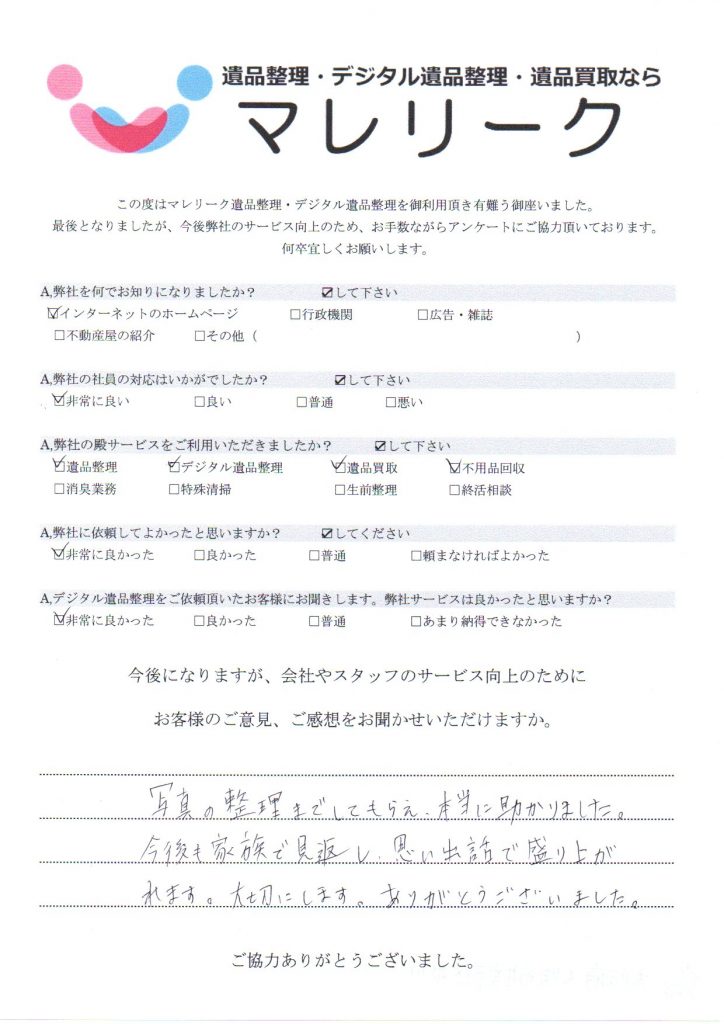 遺品整理・デジタル遺品整理・遺品買取なら
マレリーク
この度はマレリーク遺品整理・デジタル遺品整理を御利用頂き有難う御座いました。
最後となりましたが、今後弊社のサービス向上のため、お手数ながらアンケートにご協力頂いております。
何卒宜しくお願いします。
A,弊社を何でお知りになりましたか? ☑して下さい
☑インターネットのホームページ □行政機関 □広告・雑誌
□不動産屋の紹介 □その他( )
A,弊社の社員の対応はいかがでしたか? ☑して下さい
☑非常に良い □良い □普通 □悪い
A,弊社の殿サービスをご利用いただきましたか? ☑して下さい
☑遺品整理 ☑デジタル遺品整理 ☑遺品買取 ☑不用品回収
□消臭業務 □特殊清掃 □生前整理 □終活相談
A,弊社に依頼してよかったと思いますか? ☑してください
☑非常に良かった □良かった □普通 □頼まなければよかった
A,デジタル遺品整理をご依頼頂いたお客様にお聞きします。弊社サービスは良かったと思いますか?
☑非常に良かった □良かった □普通 □あまり納得できなかった
今後になりますが、会社やスタッフのサービス向上のために
お客様のご意見、ご感想をお聞かせいただけますか。
写真の整理までしてもらえ、本当に助かりました。
今後も家族で見返し、思い出話で盛り上が
れます。大切にします。ありがとうございました。
ご協力ありがとうございました。